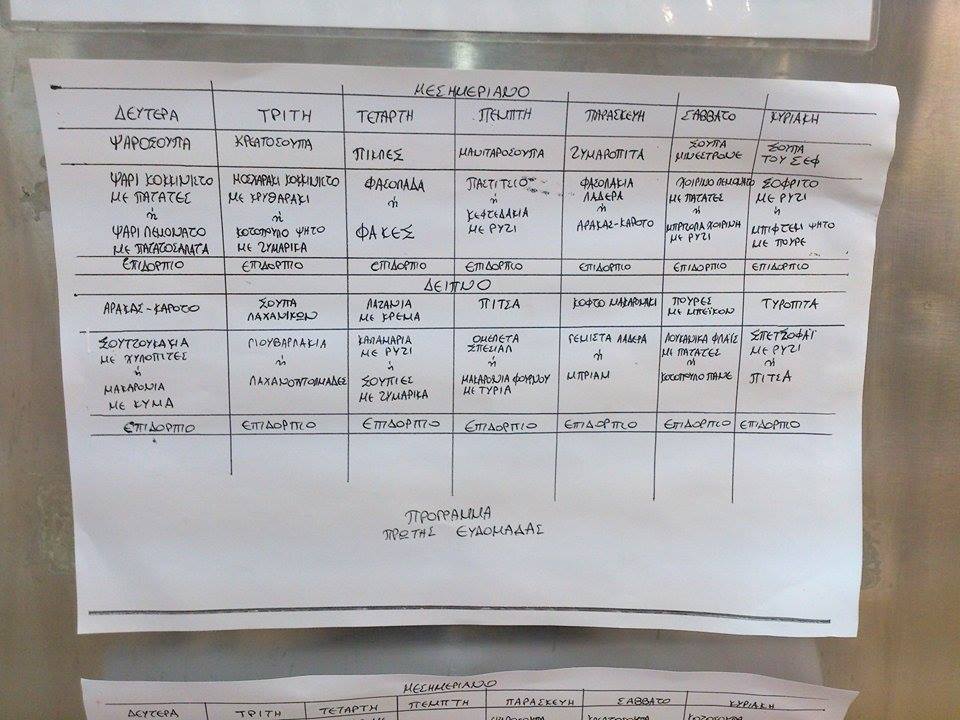 ΜΕΣΗΜΕΡΙΑΝΟ
ΔΕΥΤΕΡΑ ΤΡΙΤΗ ΤΕΤΑΡΤΗ ΠΕΜΠΤΗ ΠΑΡΑΣΚΕΥΗ ΣΑΒΒΑΤΟ ΚΥΡΙΑΚΗ
ΨΑΡΟΣΟΥΠΑ ΚΡΕΑΤΟΣΟΥΠΑ ΠΙΚΛΕΣ ΜΑΝΙΤΑΡΟΣΟΥΠΑ ΖΥΜΑΡΟΠΙΤΑ ΣΟΥΠΑ ΣΟΥΠΑ
ΜΙΝΕΣΤΡΟΝΕ ΤΟΥ ΣΕΦ
ΨΑΡΙ ΚΟΚΚΙΝΙΣΤΟ ΜΟΣΧΑΡΑΚΙ ΚΟΚΚΙΝΙΣΤΟ ΦΑΣΟΛΑΔΑ ΠΑΣΤΙΤΣΙΟ ΦΑΣΟΛΑΚΙΑ ΧΟΙΡΙΝΟ ΛΕΜΟΝΑΤΟ ΣΟΦΡΙΤΟ
ΜΕ ΠΑΤΑΤΕΣ ΜΕ ΚΡΙΘΑΡΑΚΙ ή ή ΛΑΔΕΡΑ ΜΕ ΠΑΤΑΤΕΣ ΜΕ ΡΥΖΙ
ή ή ΚΕΦΤΕΔΑΚΙΑ ή ή ή
ΨΑΡΙ ΛΕΜΟΝΑΤΟ ΚΟΤΟΠΟΥΛΟ ΨΗΤΟ ΦΑΚΕΣ ΜΕ ΡΥΖΙ ΑΡΑΚΑΣ-ΚΑΡΟΤΟ ΜΠΡΙΖΟΛΑ ΧΟΙΡΙΝΗ ΜΠΙΦΤΕΚΙ ΨΗΤΟ
ΜΕ ΠΑΤΑΤΟΣΑΛΑΤΑ ΜΕ ΖΥΜΑΡΙΚΑ ΜΕ ΡΥΖΙ ΜΕ ΠΟΥΡΕ
ΕΠΙΔΟΡΠΙΟ ΕΠΙΔΟΡΠΙΟ ΕΠΙΔΟΡΠΙΟ ΕΠΙΔΟΡΠΙΟ ΕΠΙΔΟΡΠΙΟ ΕΠΙΔΟΡΠΙΟ ΕΠΙΔΟΡΠΙΟ
ΔΕΙΠΝΟ
ΑΡΑΚΑΣ-ΚΑΡΟΤΟ ΣΟΥΠΑ ΛΑΖΑΝΙΑ ΠΙΤΣΑ ΚΟΦΤΟ ΜΑΚΑΡΟΝΑΚΙ ΠΟΥΡΕΣ ΤΥΡΟΠΙΤΑ
ΛΑΧΑΝΙΚΩΝ ΜΕ ΚΡΕΜΑ ΜΕ ΜΠΕΪΚΟΝ
ΣΟΥΤΖΟΥΚΑΚΙΑ ΓΙΟΥΒΑΡΛΑΚΙΑ ΚΑΛΑΜΑΡΙΑ ΟΜΕΛΕΤΑ ΓΕΜΙΣΤΑ ΛΑΔΕΡΑ ΛΟΥΚΑΝΙΚΑ ΣΠΕΤΣΟΦΑΪ
ΜΕ ΧΥΛΟΠΙΤΕΣ ή ΜΕ ΡΥΖΙ ΣΠΕΣΙΑΛ ή ΜΕ ΠΑΤΑΤΕΣ ΜΕ ΡΥΖΙ
ή ή ή ή ή
ΜΑΚΑΡΟΝΙΑ ΛΑΧΑΝΟΝΤΟΛΜΑΔΕΣ ΣΟΥΠΙΕΣ ΜΑΚΑΡΟΝΙΑ ΦΟΥΡΝΟΥ ΜΠΡΙΑΜ ΚΟΤΟΠΟΥΛΟ ΠΑΝΕ ΠΙΤΣΑ
ΜΕ ΚΥΜΑ ΜΕ ΖΥΜΑΡΙΚΑ ΜΕ ΤΥΡΙΑ
ΕΠΙΔΟΡΠΙΟ ΕΠΙΔΟΡΠΙΟ ΕΠΙΔΟΡΠΙΟ ΕΠΙΔΟΡΠΙΟ ΕΠΙΔΟΡΠΙΟ ΕΠΙΔΟΡΠΙΟ ΕΠΙΔΟΡΠΙΟ
ΠΡΟΓΡΑΜΜΑ
ΠΡΩΤΗΣ ΕΥΔΟΜΑΔΑΣ
ΜΕΣΗΜΕΡΙΑΝΟ
ΔΕΥΤΕΡΑ ΤΡΙΤΗ ΤΕΤΑΡΤΗ ΠΕΜΠΤΗ ΠΑΡΑΣΚΕΥΗ ΣΑΒΒΑΤΟ ΚΥΡΙΑΚΗ